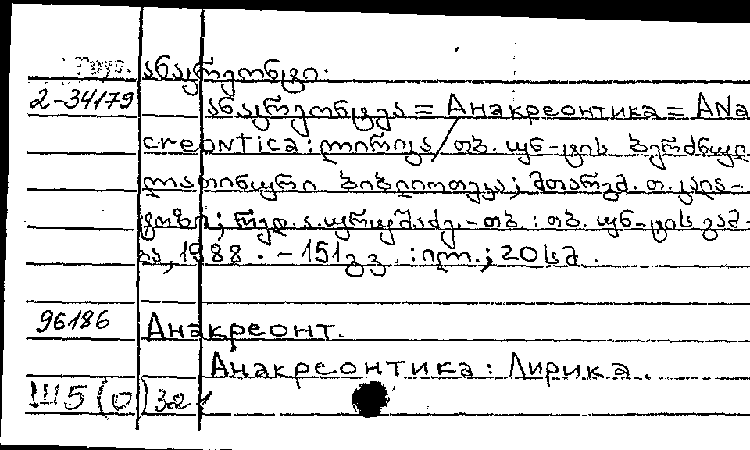 Груз. ანაკრეონტი.
2-34179 ანაკრეონტიკა = Анакреонтика = ANA
creontica : ლირიკა / თბ. უნ-ტის ბერძნულ
ლათინური ბიბლიოთეკა; მთარგმ. თ. კალა-
ტოზი; რედ. ა. ურუშაძე. - თბ. : თბ. უნ-ტის გამ-
ბა, 1988. - 151 გვ. : ილ.; 20 სმ.
96186 Анакреонт.
Анакреонтика : Лирика.
Ш5(0)321